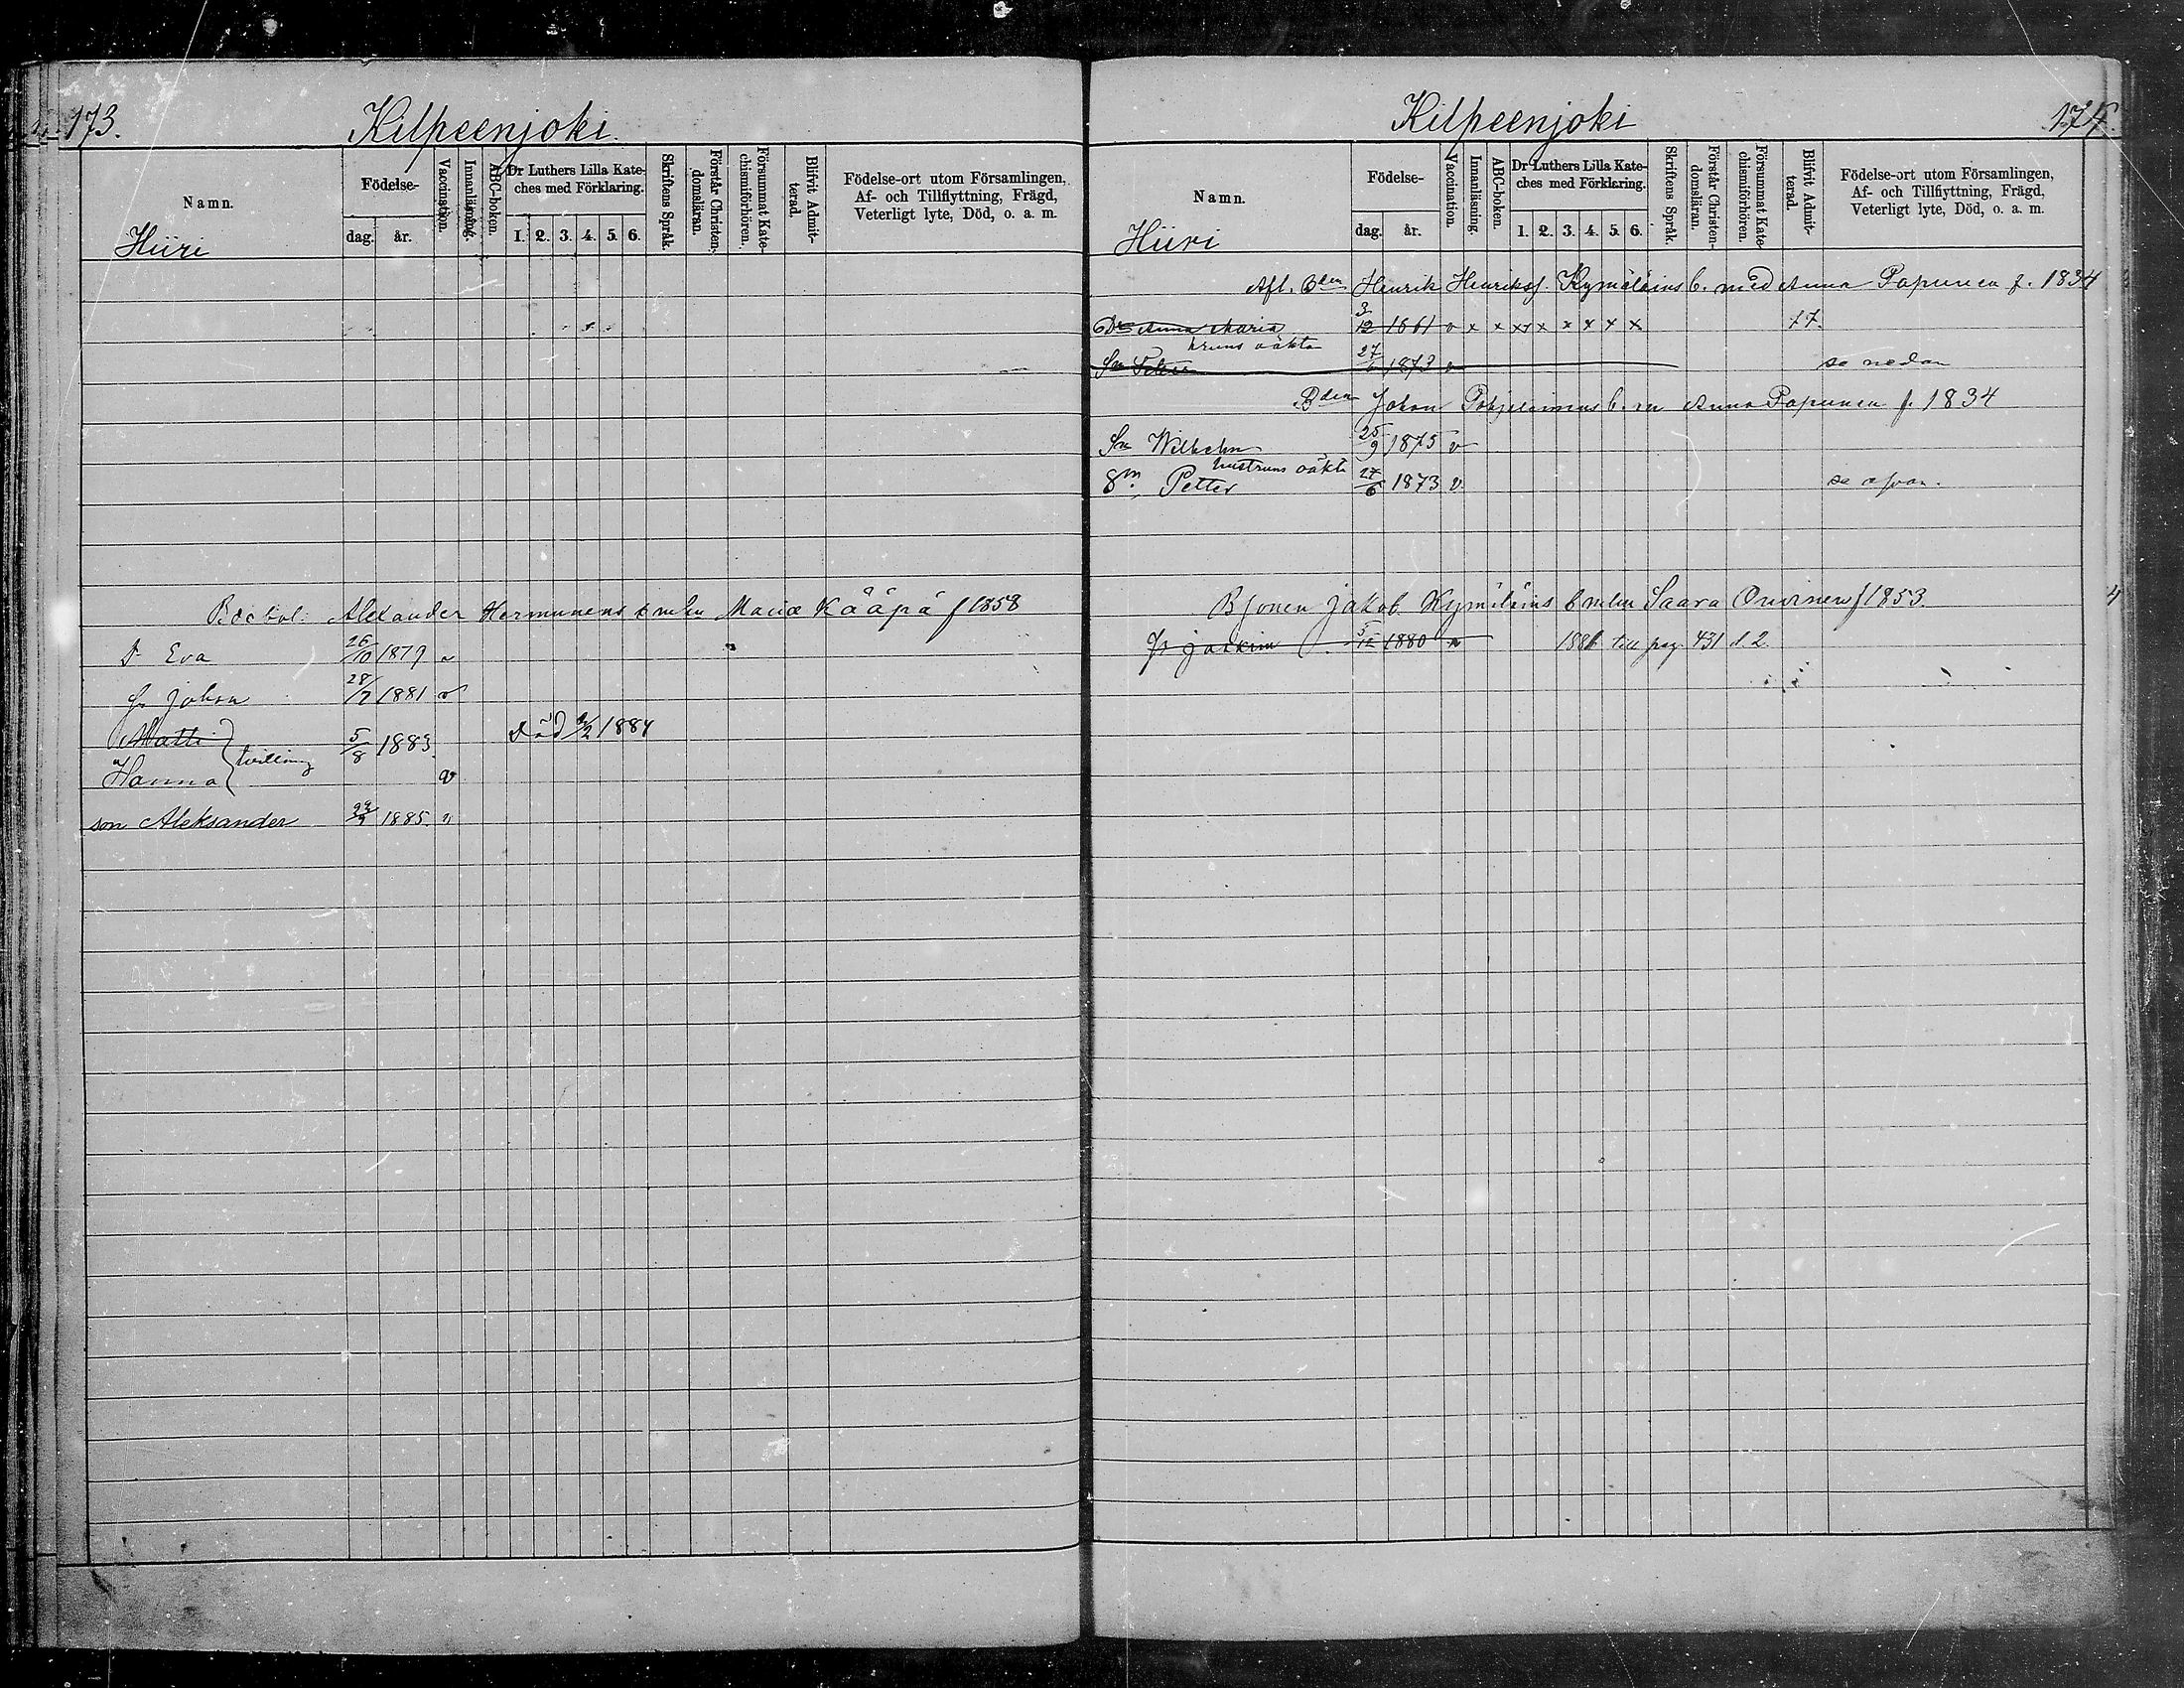 173.
Kilpeenjoki
Namn.
Hiiri
Födelse-
dag.
år.
Vaccination.
Innanläsning.
ABC-boken.
Dr Luthers Lilla Kate-
ches med Förklaring.
1. 2. 3. 4. 5. 6.
Skriftens Språk.
Förstår Christen-
domsläran.
Försummat Kate-
chismiförhören.
Blifvit Admit-
terad.
Födelse-ort utom Församlingen,
Af- och Tillflyttning, Frägd,
Veterligt lyte, Död, o. a. m.
Alexander Hermunens Maria Kääpä f 1858
D Eva 26/10 1879 v
Sn Johan 28/7 1881 v
Matti 5/8 1883 Död 2/2 1884
tvilling
Hanna v
son Aleksander 1885. v
Kilpeenjoki
174.
Namn.
Hiiri
Födelse-
dag.
år.
Vaccination.
Innanläsning.
ABC-boken.
Dr Luthers Lilla Kate-
ches med Förklaring.
1. 2. 3. 4. 5. 6.
Skriftens Språk.
Förstår Christen-
domsläran.
Försummat Kate-
chismiförhören.
Blifvit Admit-
terad.
Födelse-ort utom Församlingen,
Af- och Tillflyttning, Frägd,
Veterligt lyte, Död, o. a. m.
Afl. Bden Henrik Henrikss. Kymäläins b. med Anna Papunen f. 1834
Dr Anna Maria 3/12 1861 v x x x x x x x x x 77.
hruns oäkta
Sn Petter 27/6 1873 v se nedan
Bden Johan b. m Anna Papunen f. 1834
Sn Wilhelm 25/9 1875 v
hustruns oäkta
Sn Petter 27/6 1873 v. se ofvan.
Bsonen Jakob Kymäläins b m hu Saara Orvinen f 1853.
Sn Joakim 5/12 1880 v 1881 till pag. 431 d. 2.